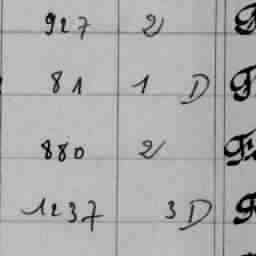 927 2
81 1 D
880 2
1237 3 D